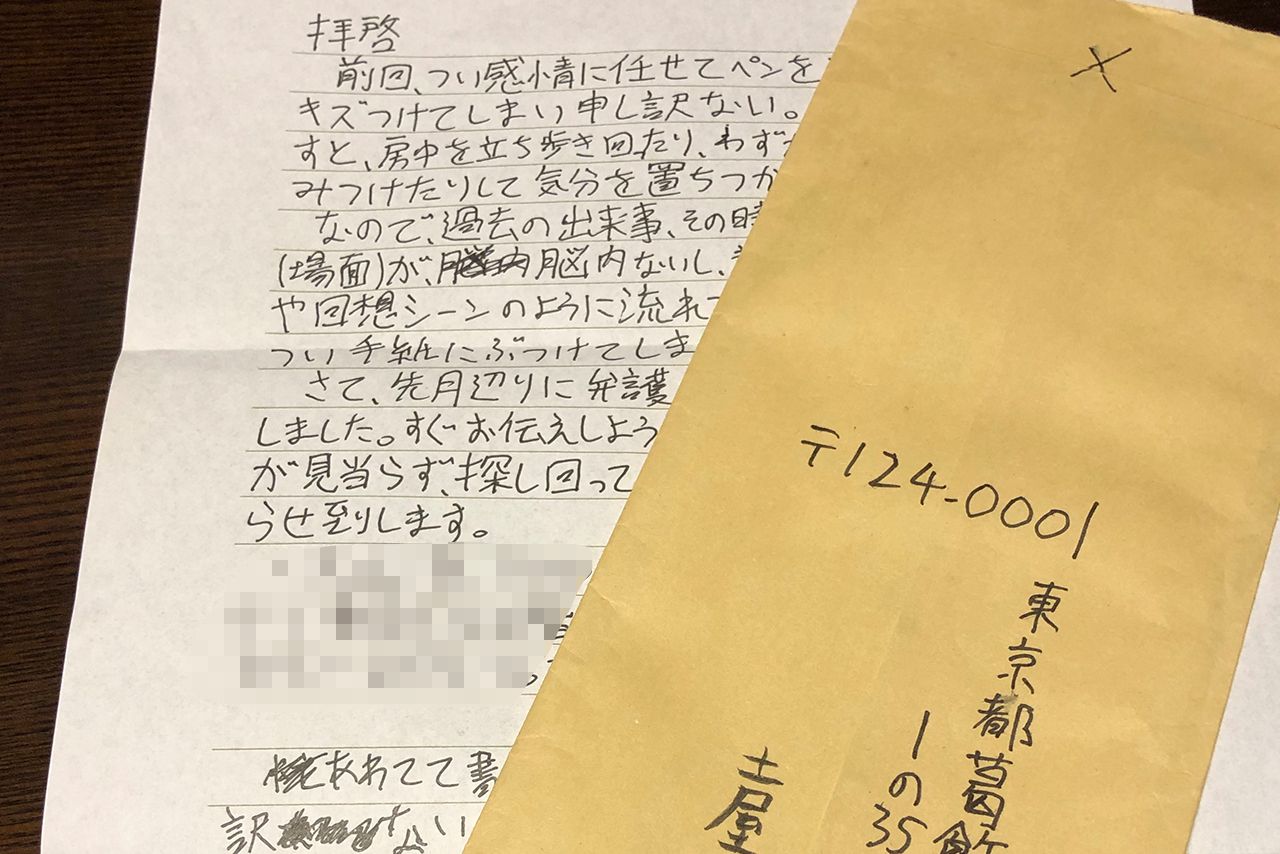 拝啓
前回、つい感情に任せてペンを
キズつけてしまい申し訳ない。
すと、房中を立ち歩き回たり、わず
みつけたりして気分を置ちつか
なので、過去の出来事、その時
(場面)が、脳内ないし、
や回想シーンのように流れて
つい手紙にぶつけてしま
さて、先月辺りに弁護
しました。すぐお伝えしよう
が見当らず、探し回って
らせ到します。
あわてて書
訳ない
〒124-0001
東京都葛飾
1の35
土屋